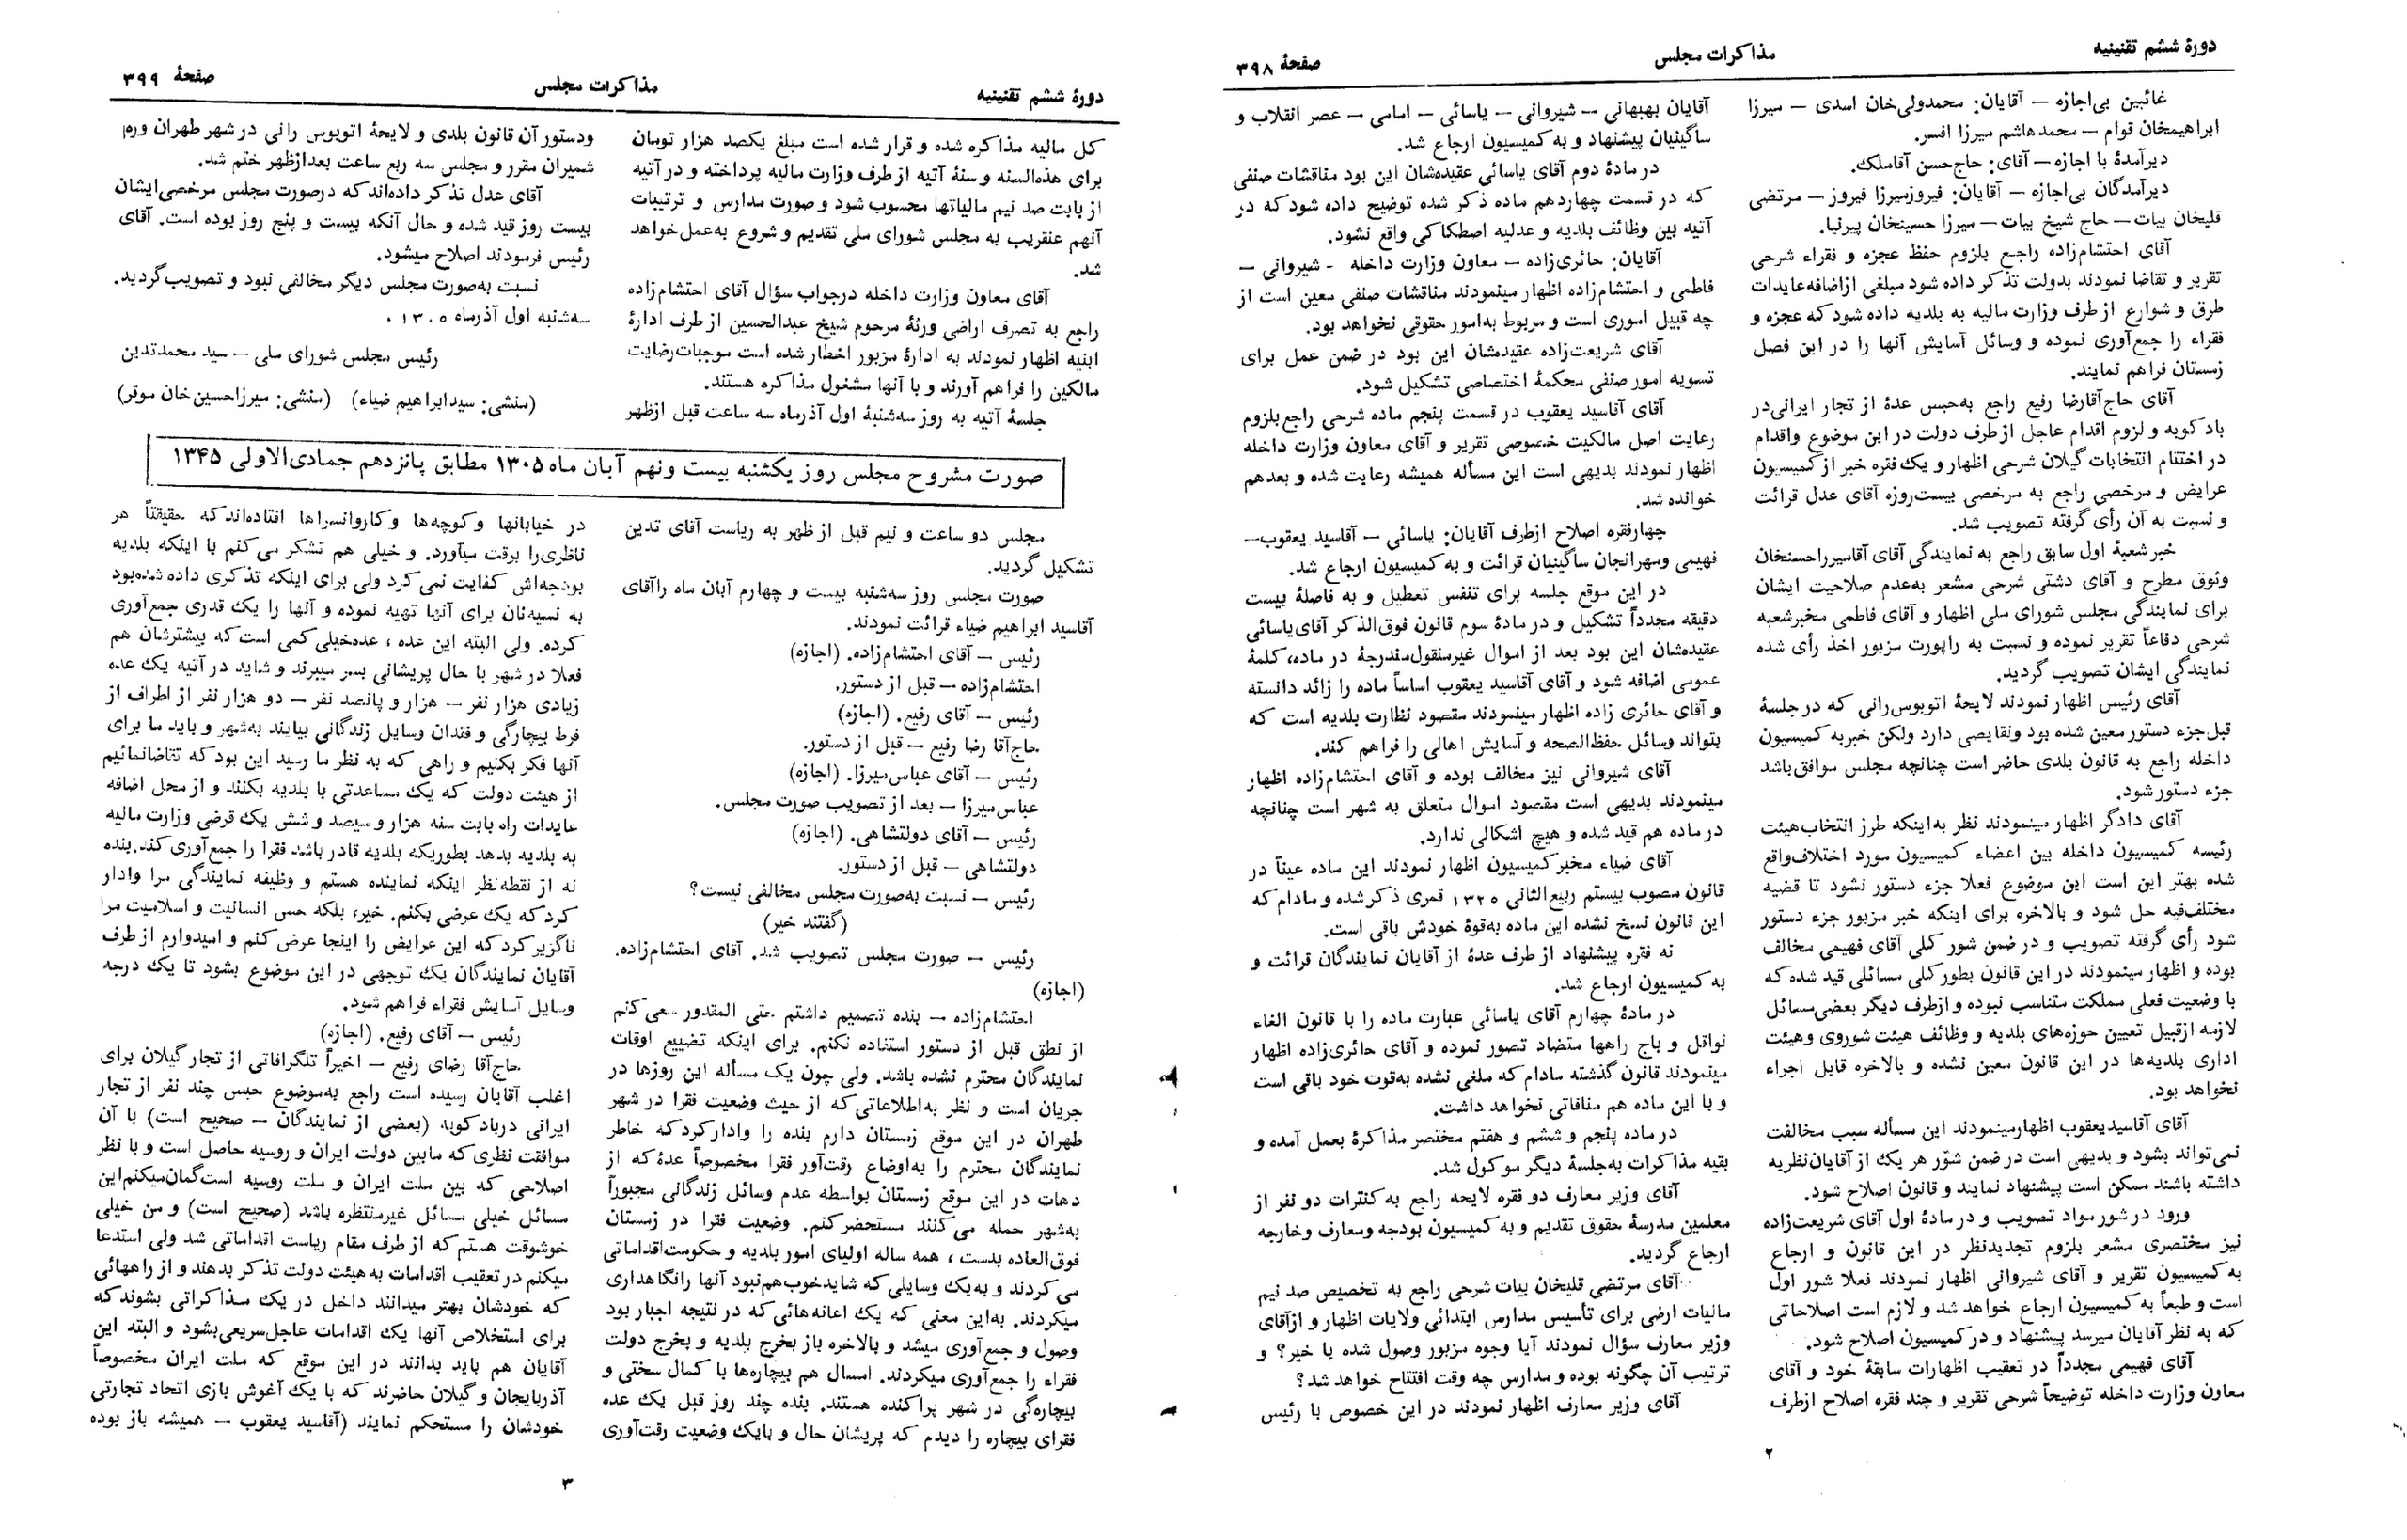 دورهٔ ششم تقنینیه
مذاکرات مجلس
صفحهٔ ۳۹۸
غائبین بی‌اجازه — آقایان: محمدولی‌خان اسدی — میرزا
ابراهیمخان قوام — محمدهاشم میرزا افسر.
دیرآمدهٔ با اجازه — آقای: حاج‌حسن آقاملک.
دیرآمدگان بی‌اجازه — آقایان: فیروزمیرزا فیروز — مرتضی
قلیخان بیات — حاج شیخ بیات — میرزا حسینخان پیرنیا.
آقای احتشام‌زاده راجع بلزوم حفظ عجزه و فقراء شرحی
تقریر و تقاضا نمودند بدولت تذکر داده شود مبلغی ازاضافه‌عایدات
طرق و شوارع ازطرف وزارت مالیه به بلدیه داده شود که عجزه و
فقراء را جمع‌آوری نموده و وسائل آسایش آنها را در این فصل
زمستان فراهم نمایند.
آقای حاج‌آقارضا رفیع راجع به‌حبس عدهٔ از تجار ایرانی‌در
بادکوبه و لزوم اقدام عاجل ازطرف دولت در این موضوع واقدام
در اختتام انتخابات گیلان شرحی اظهار و یک فقره خبر از کمیسیون
عرایض و مرخصی راجع به مرخصی بیست‌روزه آقای عدل قرائت
و نسبت به آن رأی گرفته تصویب شد.
خبر شعبهٔ اول سابق راجع به نمایندگی آقای آقامیرزاحسنخان
وثوق مطرح و آقای دشتی شرحی مشعر به‌عدم صلاحیت ایشان
برای نمایندگی مجلس شورای ملی اظهار و آقای فاطمی مخبرشعبه
شرحی دفاعاً تقریر نموده و نسبت به راپورت مزبور اخذ رأی شده
نمایندگی ایشان تصویب گردید.
آقای رئیس اظهار نمودند لایحهٔ اتوبوس‌رانی که در جلسهٔ
قبل‌جزء دستور معین شده بود ونقایصی دارد ولکن خبربه کمیسیون
داخله راجع به قانون بلدی حاضر است چنانچه مجلس موافق‌باشد
جزء دستور شود.
آقای دادگر اظهار مینمودند نظر به‌اینکه طرز انتخاب‌هیئت
رئیسه کمیسیون داخله بین اعضاء کمیسیون مورد اختلاف‌واقع
شده بهتر این است این موضوع فعلا جزء دستور نشود تا قضیه
مختلف‌فیه حل شود و بالاخره برای اینکه خبر مزبور جزء دستور
شود رأی گرفته تصویب و در ضمن شور کلی آقای فهیمی مخالف
بوده و اظهار مینمودند در این قانون بطور کلی مسائلی قید شده که
با وضعیت فعلی مملکت متناسب نبوده و ازطرف دیگر بعضی‌مسائل
لازمه ازقبیل تعیین حوزه‌های بلدیه و وظائف هیئت شوروی وهیئت
اداری بلدیه‌ها در این قانون معین نشده و بالاخره قابل اجراء
نخواهد بود.
آقای آقاسیدیعقوب اظهارمینمودند این مسأله سبب مخالفت
نمی‌تواند بشود و بدیهی است در ضمن شوّر هر یک از آقایان‌نظریه
داشته باشند ممکن است پیشنهاد نمایند و قانون اصلاح شود.
ورود در شور مواد تصویب و در مادهٔ اول آقای شریعت‌زاده
نیز مختصری مشعر بلزوم تجدیدنظر در این قانون و ارجاع
به کمیسیون تقریر و آقای شیروانی اظهار نمودند فعلا شور اول
است و طبعاً به کمیسیون ارجاع خواهد شد و لازم است اصلاحاتی
که به نظر آقایان میرسد پیشنهاد و در کمیسیون اصلاح شود.
آقای فهیمی مجدداً در تعقیب اظهارات سابقهٔ خود و آقای
معاون وزارت داخله توضیحاً شرحی تقریر و چند فقره اصلاح ازطرف
آقایان بهبهانی — شیروانی — یاسائی — امامی — عصر انقلاب و
ساگینیان پیشنهاد و به کمیسیون ارجاع شد.
در مادهٔ دوم آقای یاسائی عقیده‌شان این بود مناقشات صنفی
که در قسمت چهاردهم ماده ذکر شده توضیح داده شود که در
آتیه بین وظائف بلدیه و عدلیه اصطکاکی واقع نشود.
آقایان: حائری‌زاده — معاون وزارت داخله - شیروانی —
فاطمی و احتشام‌زاده اظهار مینمودند مناقشات صنفی معین است از
چه قبیل اموری است و مربوط به‌امور حقوقی نخواهد بود.
آقای شریعت‌زاده عقیده‌شان این بود در ضمن عمل برای
تسویه امور صنفی محکمهٔ اختصاصی تشکیل شود.
آقای آقاسید یعقوب در قسمت پنجم ماده شرحی راجع‌بلزوم
رعایت اصل مالکیت خصوصی تقریر و آقای معاون وزارت داخله
اظهار نمودند بدیهی است این مسأله همیشه رعایت شده و بعدهم
خوانده شد.
چهارفقره اصلاح ازطرف آقایان: یاسائی — آقاسید یعقوب—
فهیمی وسهرانجان ساگینیان قرائت و به کمیسیون ارجاع شد.
در این موقع جلسه برای تنفس تعطیل و به فاصلهٔ بیست
دقیقه مجدداً تشکیل و در مادهٔ سوم قانون فوق‌الذکر آقای‌یاسائی
عقیده‌شان این بود بعد از اموال غیرمنقول‌مندرجهٔ در ماده، کلمهٔ
عمومی اضافه شود و آقای آقاسید یعقوب اساساً ماده را زائد دانسته
و آقای حائری زاده اظهار مینمودند مقصود نظارت بلدیه است که
بتواند وسائل حفظ‌الصحه و آسایش اهالی را فراهم کند.
آقای شیروانی نیز مخالف بوده و آقای احتشام‌زاده اظهار
مینمودند بدیهی است مقصود اموال متعلق به شهر است چنانچه
در ماده هم قید شده و هیچ اشکالی ندارد.
آقای ضیاء مخبر کمیسیون اظهار نمودند این ماده عیناً در
قانون مصوب بیستم ربیع‌الثانی ۱۳۲۵ قمری ذکر شده و مادام که
این قانون نسخ نشده این ماده به‌قوهٔ خودش باقی است.
نه فقره پیشنهاد از طرف عدهٔ از آقایان نمایندگان قرائت و
به کمیسیون ارجاع شد.
در مادهٔ چهارم آقای یاسائی عبارت ماده را با قانون الغاء
نواقل و باج راهها متضاد تصور نموده و آقای حائری‌زاده اظهار
مینمودند قانون گذشته مادام که ملغی نشده به‌قوت خود باقی است
و با این ماده هم منافاتی نخواهد داشت.
در ماده پنجم و ششم و هفتم مختصر مذاکرهٔ بعمل آمده و
بقیه مذاکرات به‌جلسهٔ دیگر موکول شد.
آقای وزیر معارف دو فقره لایحه راجع به کنترات دو نفر از
معلمین مدرسهٔ حقوق تقدیم و به کمیسیون بودجه ومعارف وخارجه
ارجاع گردید.
آقای مرتضی قلیخان بیات شرحی راجع به تخصیص صد نیم
مالیات ارضی برای تأسیس مدارس ابتدائی ولایات اظهار و ازآقای
وزیر معارف سؤال نمودند آیا وجوه مزبور وصول شده یا خیر؟ و
ترتیب آن چگونه بوده و مدارس چه وقت افتتاح خواهد شد؟
آقای وزیر معارف اظهار نمودند در این خصوص با رئیس
۲
دورهٔ ششم تقنینیه
مذاکرات مجلس
صفحهٔ ۳۹۹
کل مالیه مذاکره شده و قرار شده است مبلغ یکصد هزار تومان
برای هذه‌السنه و سنهٔ آتیه از طرف وزارت مالیه پرداخته و در آتیه
از بابت صد نیم مالیاتها محسوب شود و صورت مدارس و ترتیبات
آنهم عنقریب به مجلس شورای ملی تقدیم و شروع به‌عمل‌خواهد
شد.
آقای معاون وزارت داخله درجواب سؤال آقای احتشام‌زاده
راجع به تصرف اراضی ورثهٔ مرحوم شیخ عبدالحسین از طرف ادارهٔ
ابنیه اظهار نمودند به ادارهٔ مزبور اخطار شده است موجبات‌رضایت
مالکین را فراهم آورند و با آنها مشغول مذاکره هستند.
جلسهٔ آتیه به روز سه‌شنبهٔ اول آذرماه سه ساعت قبل ازظهر
ودستور آن قانون بلدی و لایحهٔ اتوبوس رانی در شهر طهران ورم
شمیران مقرر و مجلس سه ربع ساعت بعدازظهر ختم شد.
آقای عدل تذکر داده‌اند که درصورت مجلس مرخصی‌ایشان
بیست روز قید شده و حال آنکه بیست و پنج روز بوده است. آقای
رئیس فرمودند اصلاح میشود.
نسبت به‌صورت مجلس دیگر مخالفی نبود و تصویب‌گردید.
سه‌شنبه اول آذرماه ۱۳۰۵ .
رئیس مجلس شورای ملی — سید محمدتدین
(منشی: سیدابراهیم ضیاء) (منشی: میرزاحسین‌خان موقر)
صورت مشروح مجلس روز یکشنبه بیست ونهم آبان ماه ۱۳۰۵ مطابق پانزدهم جمادی‌الاولی ۱۳۴۵
مجلس دو ساعت و نیم قبل از ظهر به ریاست آقای تدین
تشکیل گردید.
صورت مجلس روز سه‌شنبه بیست و چهارم آبان ماه راآقای
آقاسید ابراهیم ضیاء قرائت نمودند.
رئیس — آقای احتشام‌زاده. (اجازه)
احتشام‌زاده — قبل از دستور.
رئیس — آقای رفیع. (اجازه)
حاج‌آقا رضا رفیع — قبل از دستور.
رئیس — آقای عباس‌میرزا. (اجازه)
عباس‌میرزا — بعد از تصویب صورت مجلس.
رئیس — آقای دولتشاهی. (اجازه)
دولتشاهی — قبل از دستور.
رئیس — نسبت به‌صورت مجلس مخالفی نیست؟
(گفتند خیر)
رئیس — صورت مجلس تصویب شد. آقای احتشام‌زاده.
(اجازه)
احتشام‌زاده — بنده تصمیم داشتم حتی المقدور سعی کنم
از نطق قبل از دستور استفاده نکنم. برای اینکه تضییع اوقات
نمایندگان محترم نشده باشد. ولی چون یک مسأله این روزها در
جریان است و نظر به‌اطلاعاتی که از حیث وضعیت فقرا در شهر
طهران در این موقع زمستان دارم بنده را وادارکرد که خاطر
نمایندگان محترم را به‌اوضاع رقت‌آور فقرا مخصوصاً عدهٔ که از
دهات در این موقع زمستان بواسطه عدم وسائل زندگانی مجبوراً
به‌شهر حمله می‌کنند مستحضر کنم. وضعیت فقرا در زمستان
فوق‌العاده بدست ، همه ساله اولیای امور بلدیه و حکومت‌اقداماتی
می‌کردند و به یک وسایلی که شایدخوب‌هم‌نبود آنها رانگاهداری
میکردند. به‌این معنی که یک اعانه‌هائی که در نتیجه اجبار بود
وصول و جمع‌آوری میشد و بالاخره باز بخرج بلدیه و بخرج دولت
فقراء را جمع‌آوری میکردند. امسال هم بیچاره‌ها با کمال سختی و
بیچاره‌گی در شهر پراکنده هستند. بنده چند روز قبل یک عده
فقرای بیچاره را دیدم که پریشان حال و بایک وضعیت رقت‌آوری
در خیابانها وکوچه‌ها وکاروانسراها افتاده‌اند که حقیقتاً هر
ناظری‌را برقت میآورد. و خیلی هم تشکر می‌کنم با اینکه بلدیه
بودجه‌اش کفایت نمی‌کرد ولی برای اینکه تذکری داده شده‌بود
به نسیه‌نان برای آنها تهیه نموده و آنها را یک قدری جمع‌آوری
کرده. ولی البته این عده ، عده‌خیلی کمی است که بیشترشان هم
فعلا در شهر با حال پریشانی بسر میبرند و شاید در آتیه یک عده
زیادی هزار نفر — هزار و پانصد نفر — دو هزار نفر از اطراف از
فرط بیچارگی و فقدان وسایل زندگانی بیایند به‌شهر و باید ما برای
آنها فکر بکنیم و راهی که به نظر ما رسید این بود که تقاضانمائیم
از هیئت دولت که یک مساعدتی با بلدیه بکنند و از محل اضافه
عایدات راه بابت سنه هزار و سیصد و شش یک قرضی وزارت مالیه
به بلدیه بدهد بطوریکه بلدیه قادر باشد فقرا را جمع‌آوری کند. بنده
نه از نقطه‌نظر اینکه نماینده هستم و وظیفه نمایندگی مرا وادار
کرد که یک عرضی بکنم. خیر، بلکه حس انسانیت و اسلامیت مرا
ناگزیر کرد که این عرایض را اینجا عرض کنم و امیدوارم از طرف
آقایان نمایندگان یک توجهی در این موضوع بشود تا یک درجه
وسایل آسایش فقراء فراهم شود.
رئیس — آقای رفیع. (اجازه)
حاج‌آقا رضای رفیع — اخیراً تلگرافاتی از تجار گیلان برای
اغلب آقایان رسیده است راجع به‌موضوع حبس چند نفر از تجار
ایرانی دربادکوبه (بعضی از نمایندگان — صحیح است) با آن
موافقت نظری که مابین دولت ایران و روسیه حاصل است و با نظر
اصلاحی که بین ملت ایران و ملت روسیه است‌گمان‌میکنم‌این
مسائل خیلی مسائل غیرمنتظره باشد (صحیح است) و من خیلی
خوشوقت هستم که از طرف مقام ریاست اقداماتی شد ولی استدعا
میکنم در تعقیب اقدامات به هیئت دولت تذکر بدهند و از راههائی
که خودشان بهتر میدانند داخل در یک مذاکراتی بشوند که
برای استخلاص آنها یک اقدامات عاجل‌سریعی‌بشود و البته این
آقایان هم باید بدانند در این موقع که ملت ایران مخصوصاً
آذربایجان و گیلان حاضرند که با یک آغوش بازی اتحاد تجارتی
خودشان را مستحکم نمایند (آقاسید یعقوب — همیشه باز بوده
۳